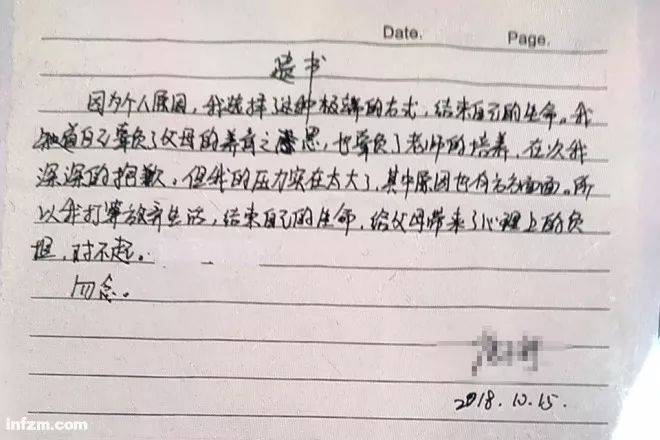 Date.
Page.
遗书
因为个人原因,我选择了这种极端的方式,结束自己的生命。我
知道自己辜负了父母的养育之恩,也辜负了老师的培养,在次我
深深的抱歉,但我的压力实在太大了,其中原因也有方方面面。所
以我打算放弃生活,结束自己的生命,给父母带来了心理上的负
担,对不起。
勿念。
2018.10.15.
infzm.com